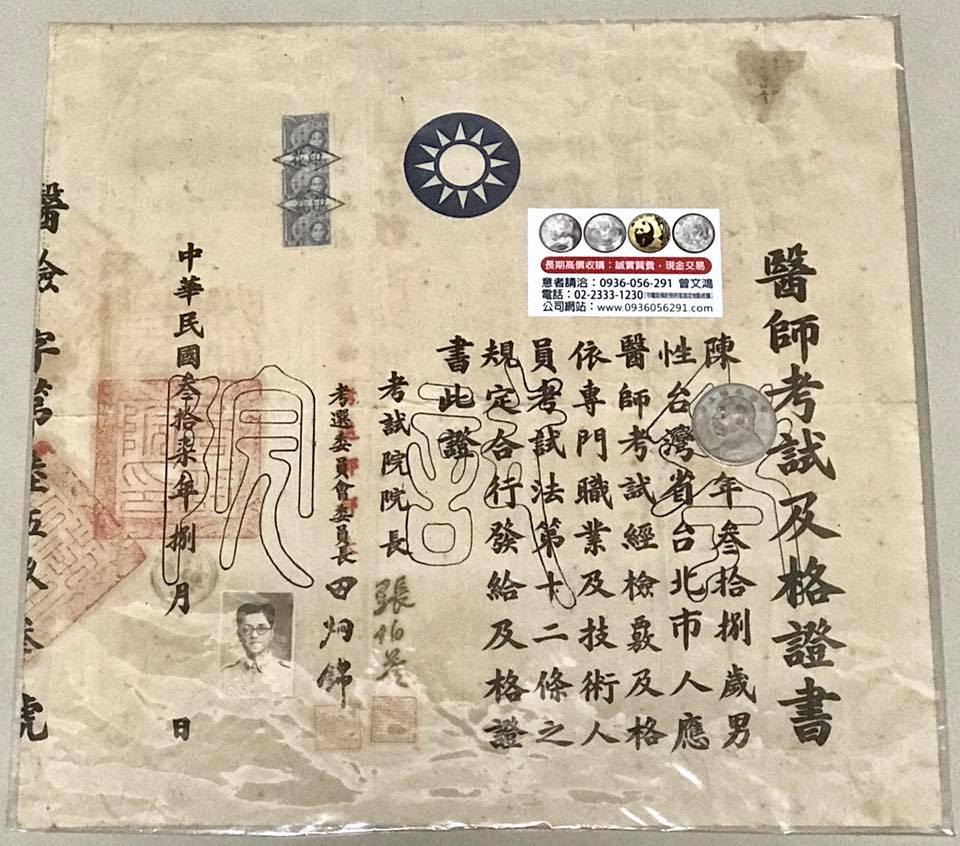 醫師考試及格證書
陳 年叁拾捌歲男
性台灣省台北市人應
醫師考試經檢覈及格
依專門職業及技術人
員考試法第十二條之
規定合行發給及格證
書此證
考試院院長 張伯苓
考選委員會委員長 田炯錦
中華民國叁拾柒年捌月 日
醫檢字第陸伍玖叁號
長期高價收購：誠實買賣，現金交易
意者請洽：0936-056-291 曾文鴻
電話：02-2333-1230
公司網站：www.0936056291.com